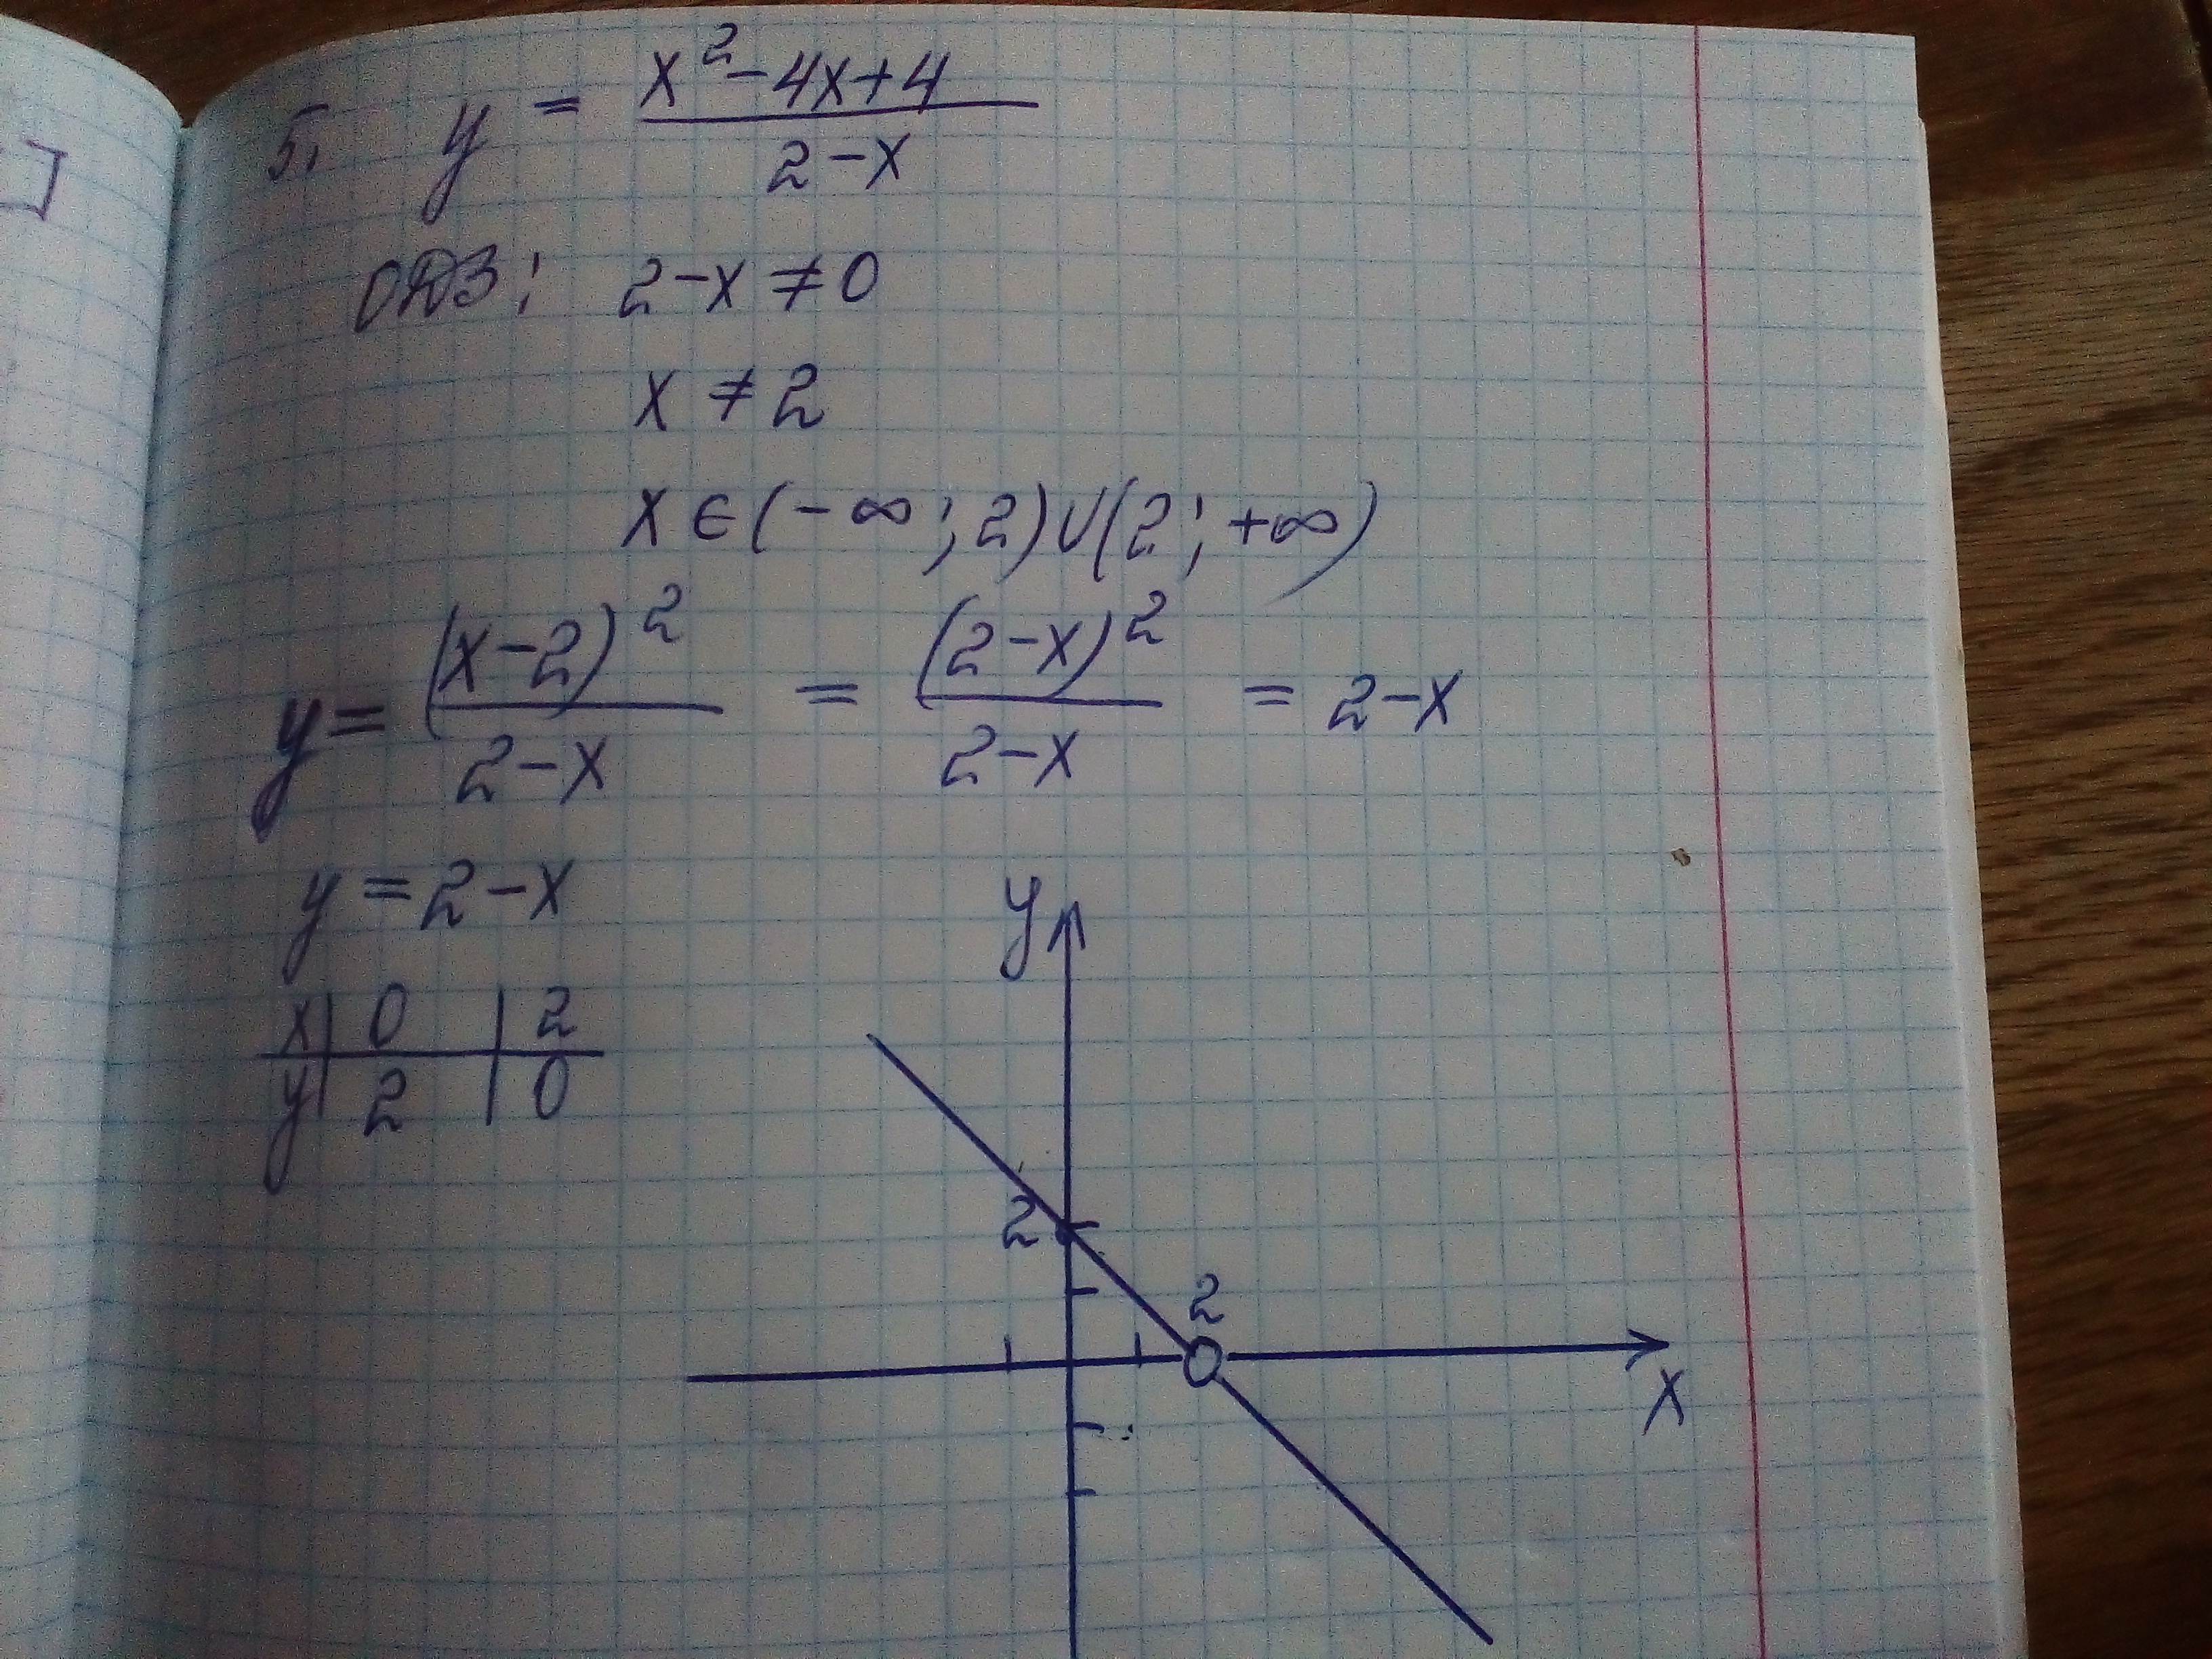 ]
5. y = (x² - 4x + 4) / (2 - x)
ОДЗ: 2 - x ≠ 0
x ≠ 2
x ∈ (-∞; 2) ∪ (2; +∞)
y = (x - 2)² / (2 - x) = (2 - x)² / (2 - x) = 2 - x
y = 2 - x
x | 0 | 2
y | 2 | 0
y
2
2
x